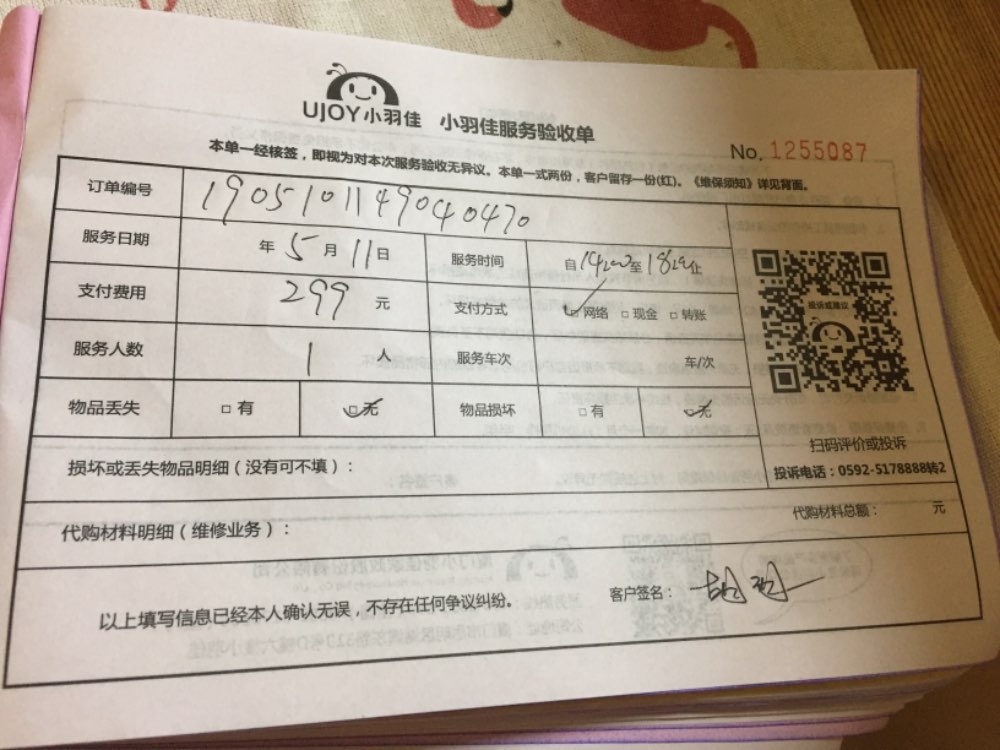 UJOY小羽佳 小羽佳服务验收单
No. 1255087
本单一经核签，即视为对本次服务验收无异议。本单一式两份，客户留存一份(红)。《维保须知》详见背面。
订单编号 1905101149040470
服务日期 年 5 月 11 日 服务时间 自 14:00 至 18:00 止
支付费用 299 元 支付方式 ☑网络 □现金 □转账
服务人数 1 人 服务车次 车/次
物品丢失 □有 ☑无 物品损坏 □有 ☑无
投诉或建议
扫码评价或投诉
投诉电话：0592-5178888转2
损坏或丢失物品明细（没有可不填）：
代购材料明细（维修业务）： 代购材料总额： 元
以上填写信息已经本人确认无误，不存在任何争议纠纷。 客户签名：